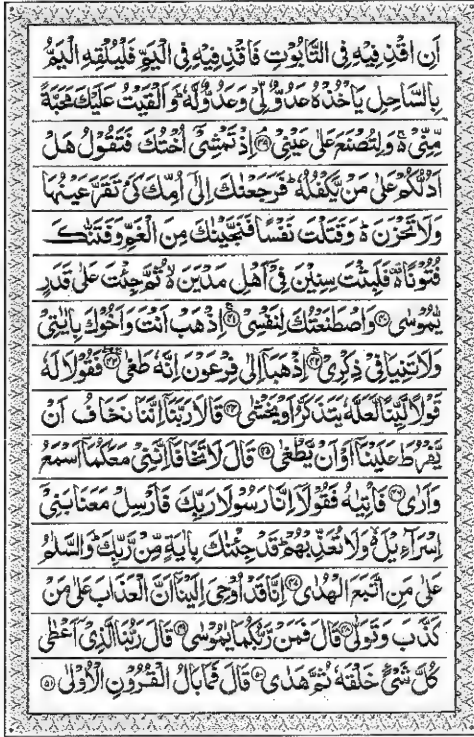 اَنِ اقْذِفِيْهِ فِي التَّابُوْتِ فَاقْذِفِيْهِ فِي الْيَمِّ فَلْيُلْقِهِ الْيَمُّ
بِالسَّاحِلِ يَاْخُذْهُ عَدُوٌّ لِّيْ وَعَدُوٌّ لَّهٗ ؕ وَاَلْقَيْتُ عَلَيْكَ مَحَبَّةً
مِّنِّيْ ۬ۚ وَلِتُصْنَعَ عَلٰى عَيْنِيْ ﴿۳۹﴾ اِذْ تَمْشِيْۤ اُخْتُكَ فَتَقُوْلُ هَلْ
اَدُلُّكُمْ عَلٰى مَنْ يَّكْفُلُهٗ ؕ فَرَجَعْنٰكَ اِلٰۤى اُمِّكَ كَيْ تَقَرَّ عَيْنُهَا
وَلَا تَحْزَنَ ؕ۬ وَقَتَلْتَ نَفْسًا فَنَجَّيْنٰكَ مِنَ الْغَمِّ وَفَتَنّٰكَ
فُتُوْنًا ۬۫ فَلَبِثْتَ سِنِيْنَ فِيْۤ اَهْلِ مَدْيَنَ ۬ۙ ثُمَّ جِئْتَ عَلٰى قَدَرٍ
يّٰمُوْسٰى ﴿۴۰﴾ وَاصْطَنَعْتُكَ لِنَفْسِيْ ﴿۴۱﴾ اِذْهَبْ اَنْتَ وَاَخُوْكَ بِاٰيٰتِيْ
وَلَا تَنِيَا فِيْ ذِكْرِيْ ﴿۴۲﴾ اِذْهَبَاۤ اِلٰى فِرْعَوْنَ اِنَّهٗ طَغٰى ﴿۴۳﴾ فَقُوْلَا لَهٗ
قَوْلًا لَّيِّنًا لَّعَلَّهٗ يَتَذَكَّرُ اَوْ يَخْشٰى ﴿۴۴﴾ قَالَا رَبَّنَاۤ اِنَّنَا نَخَافُ اَنْ
يَّفْرُطَ عَلَيْنَاۤ اَوْ اَنْ يَّطْغٰى ﴿۴۵﴾ قَالَ لَا تَخَافَاۤ اِنَّنِيْ مَعَكُمَاۤ اَسْمَعُ
وَاَرٰى ﴿۴۶﴾ فَاْتِيٰهُ فَقُوْلَاۤ اِنَّا رَسُوْلَا رَبِّكَ فَاَرْسِلْ مَعَنَا بَنِيْۤ
اِسْرَآءِيْلَ ۬ۙ وَلَا تُعَذِّبْهُمْ ؕ قَدْ جِئْنٰكَ بِاٰيَةٍ مِّنْ رَّبِّكَ ؕ وَالسَّلٰمُ
عَلٰى مَنِ اتَّبَعَ الْهُدٰى ﴿۴۷﴾ اِنَّا قَدْ اُوْحِيَ اِلَيْنَاۤ اَنَّ الْعَذَابَ عَلٰى مَنْ
كَذَّبَ وَتَوَلّٰى ﴿۴۸﴾ قَالَ فَمَنْ رَّبُّكُمَا يٰمُوْسٰى ﴿۴۹﴾ قَالَ رَبُّنَا الَّذِيْۤ اَعْطٰى
كُلَّ شَيْءٍ خَلْقَهٗ ثُمَّ هَدٰى ﴿۵۰﴾ قَالَ فَمَا بَالُ الْقُرُوْنِ الْاُوْلٰى ﴿۵۱﴾